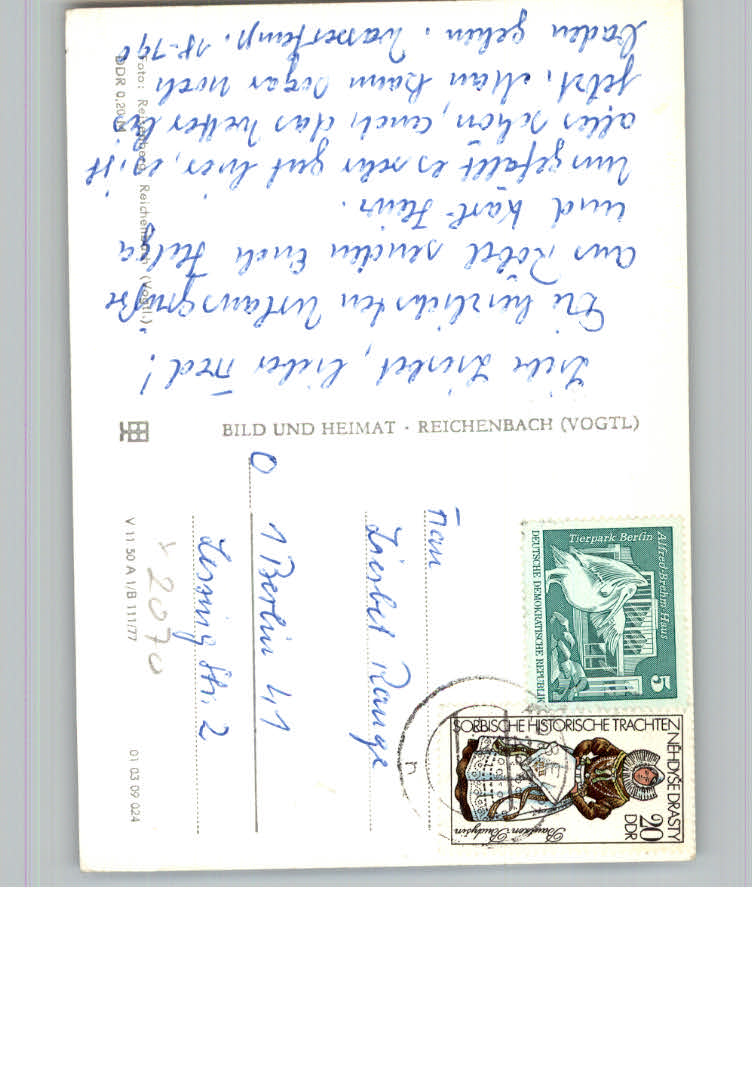 Liebe Liesbet, lieber Fred!
Die herzlichsten Urlaubsgrüße
aus Röbel senden Euch Helga
und Karl-Heinz.
Uns gefällt es sehr gut hier, es ist
alles schön, auch das Wetter bis
jetzt. Man kann sogar noch
baden gehen. Wassertemp. 18-19°
Foto: Reichenbach (Vogtl.)
DDR 0,20 M
BILD UND HEIMAT · REICHENBACH (VOGTL)
Frau
Liesbet Range
1 Berlin 41
Lessing Str. 2
V 11 50 A 1/B 111/77
01 03 09 024
Tierpark Berlin
Alfred-Brehm-Haus
DEUTSCHE DEMOKRATISCHE REPUBLIK
5
SORBISCHE HISTORISCHE TRACHTEN
NĚHDYŠE DRASTY
Bautzen · Budyšin
20
DDR